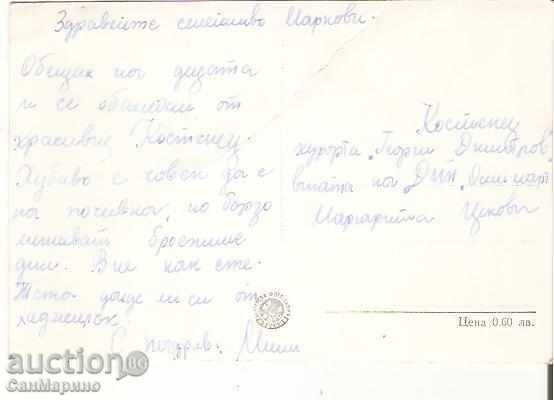 Здравейте семейство Маркови.
Обещах на децата
и се обаждам от
красивия Костенец.
Хубаво е човек да е
на почивка, но бързо
минават броените
дни. Вие как сте.
дойде ли си от
С поздрав: Мими
Костенец
курорта "Георги Димитров"
вилата на ДИП
Маргарита Цекови
Цена 0.60 лв.
auction BG
СанМарино